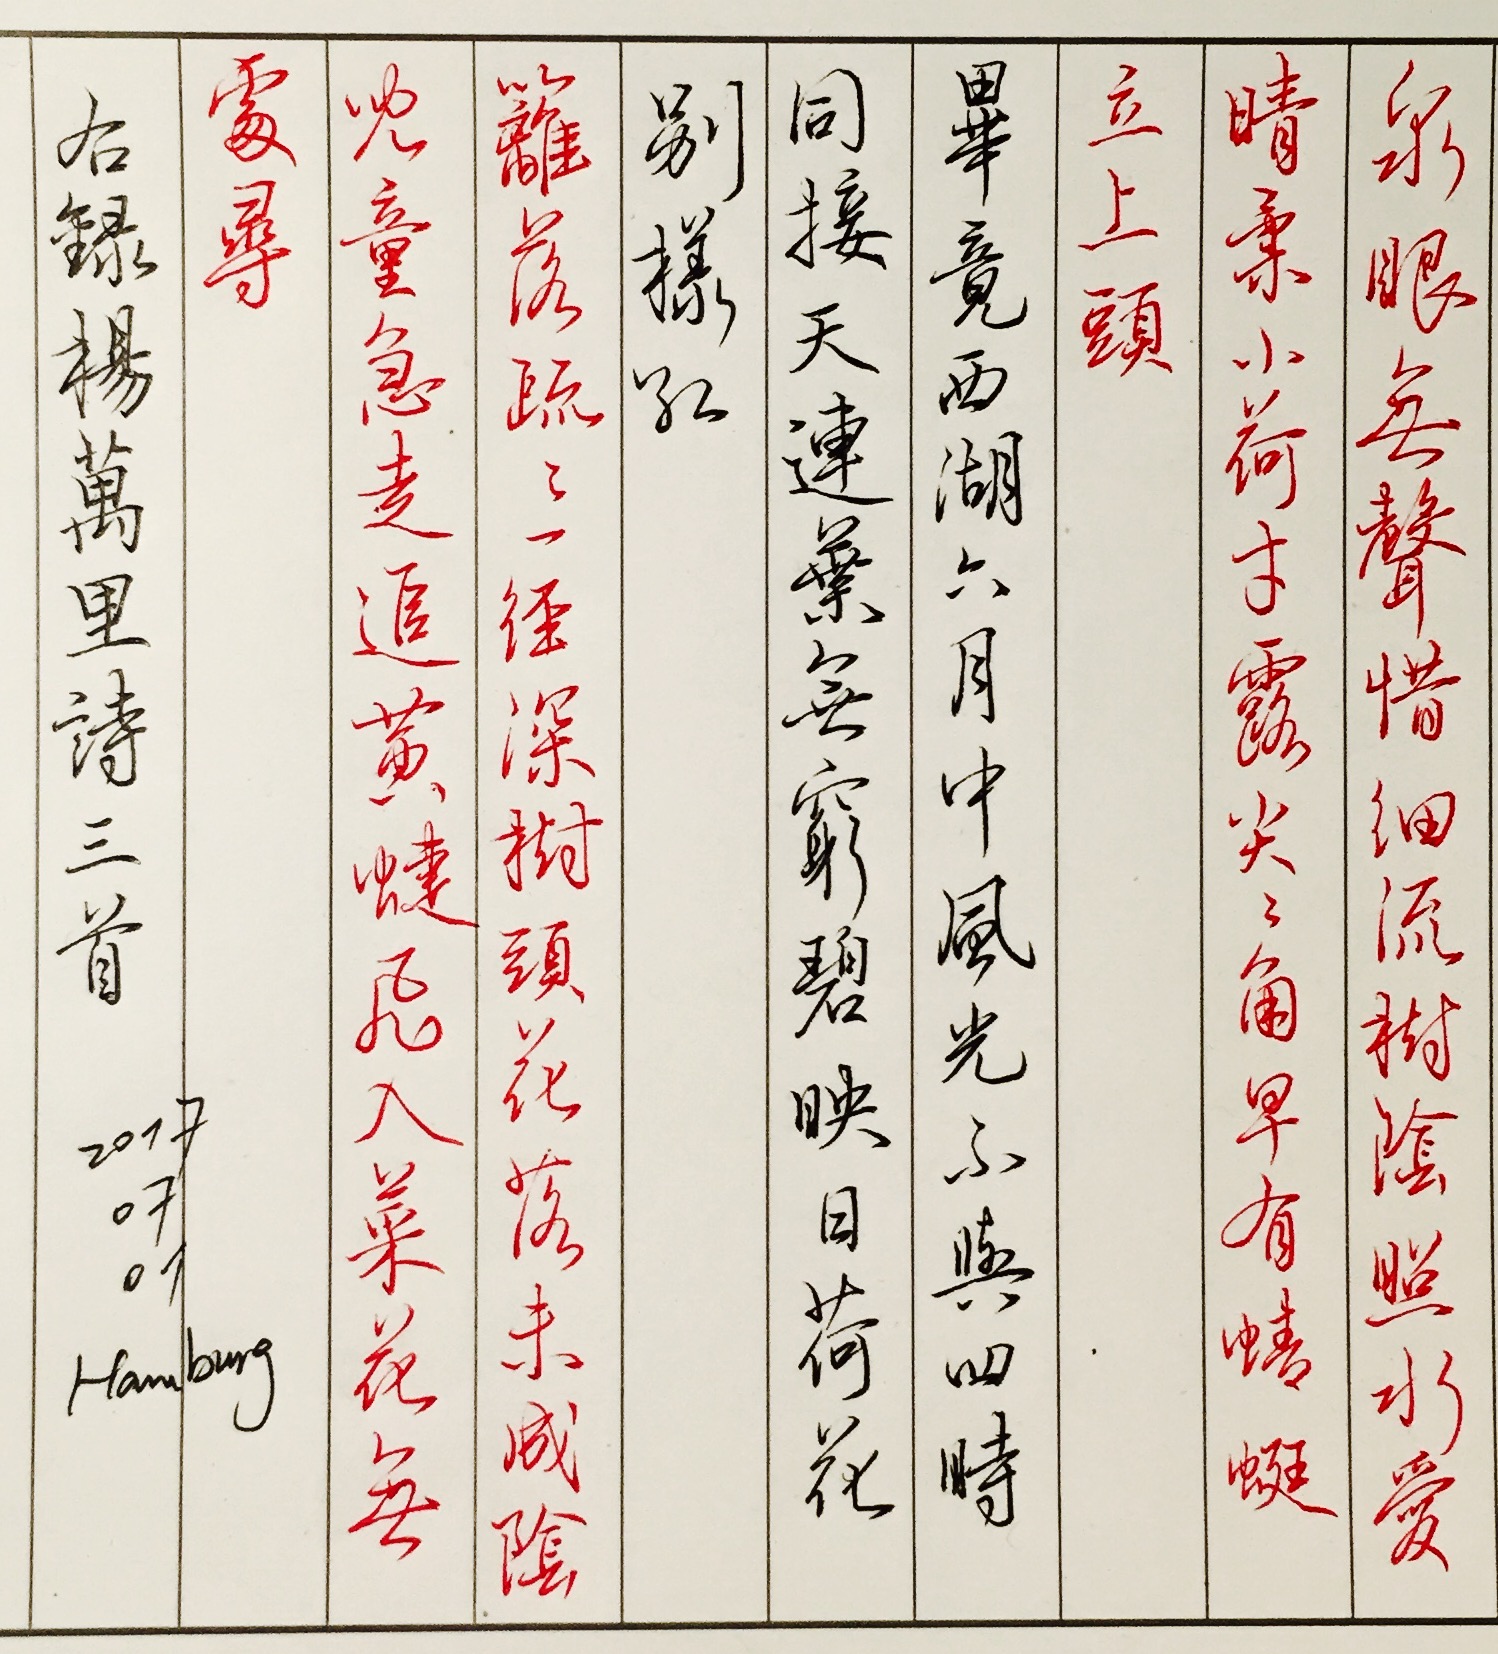 泉眼無聲惜細流樹陰照水愛
晴柔小荷才露尖〻角早有蜻蜓
立上頭
畢竟西湖六月中風光不與四時
同接天連葉無窮碧映日荷花
別樣紅
籬落疏〻一徑深樹頭花落未成陰
兒童急走追黃蝶飛入菜花無
處尋
右録楊萬里詩三首
2017
07
01
Hamburg